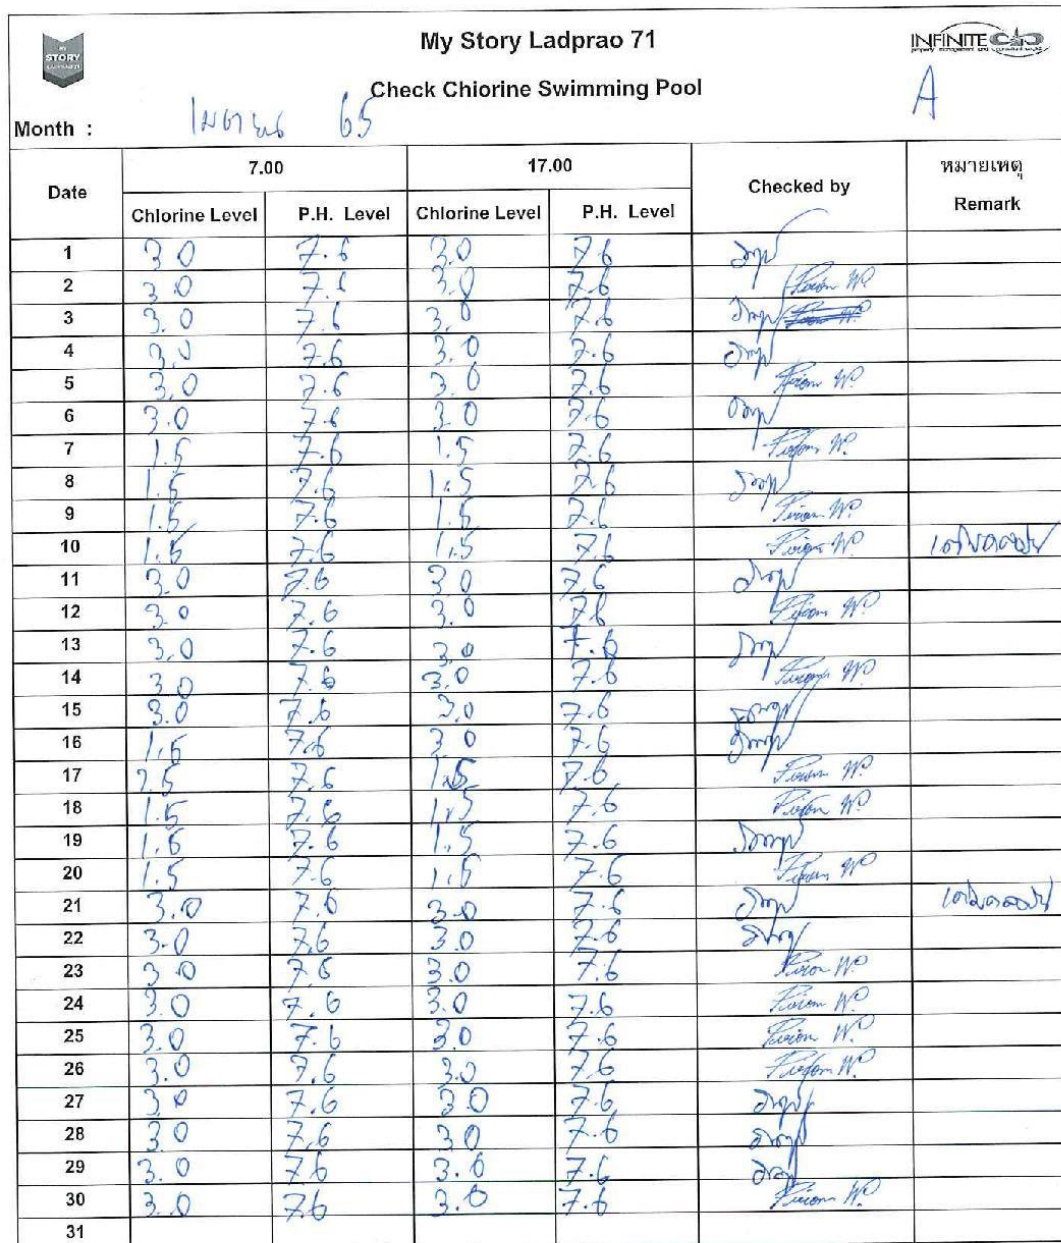 MY
STORY
My Story Ladprao 71
INFINITE
Check Chiorine Swimming Pool
A
Month : เมษายน 65
Date 7.00 17.00 Checked by หมายเหตุ
Chlorine Level P.H. Level Chlorine Level P.H. Level Remark
1 3.0 7.6 3.0 7.6
2 3.0 7.6 3.0 7.6
3 3.0 7.6 3.0 7.6
4 3.0 7.6 3.0 7.6
5 3.0 7.6 3.0 7.6
6 3.0 7.6 3.0 7.6
7 1.5 7.6 1.5 7.6
8 1.5 7.6 1.5 7.6
9 1.5 7.6 1.5 7.6
10 1.5 7.6 1.5 7.6 เติมคลอรีน
11 3.0 7.6 3.0 7.6
12 3.0 7.6 3.0 7.6
13 3.0 7.6 3.0 7.6
14 3.0 7.6 3.0 7.6
15 3.0 7.6 3.0 7.6
16 1.5 7.6 3.0 7.6
17 7.6 1.5 7.6
18 1.5 7.6 1.5 7.6
19 1.5 7.6 1.5 7.6
20 1.5 7.6 1.5 7.6
21 3.0 7.6 3.0 7.6 เติมคลอรีน
22 3.0 7.6 3.0 7.6
23 3.0 7.6 3.0 7.6
24 3.0 7.6 3.0 7.6
25 3.0 7.6 3.0 7.6
26 3.0 7.6 3.0 7.6
27 3.0 7.6 3.0 7.6
28 3.0 7.6 3.0 7.6
29 3.0 7.6 3.0 7.6
30 3.0 7.6 3.0 7.6
31